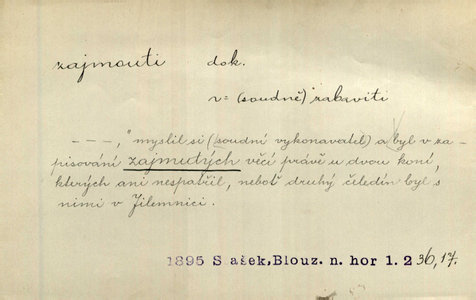 zajmouti dok.
v= (soudně) zabaviti
– – –, "myslil si (soudní vykonavatel) a byl v za-
pisování zajmutých věcí právě u dvou koní,
kterých ani nespatřil, neboť druhý čeledín byl s
nimi v Jilemnici.
1895 S ašek, Blouz. n. hor 1. 2 36, 17.